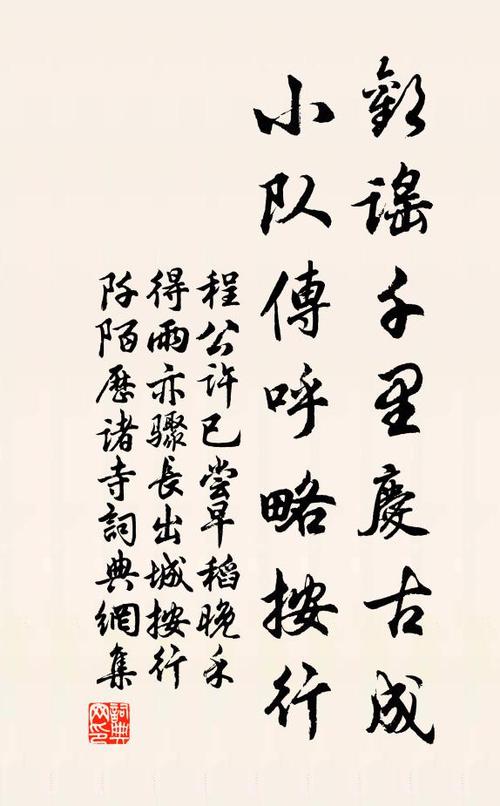 歡謠千里慶古成
小队傳呼略按行
程公許已嘗早稻晚禾
得雨亦驟長出城按行
阡陌歷諸寺詞典網集
詞典網印